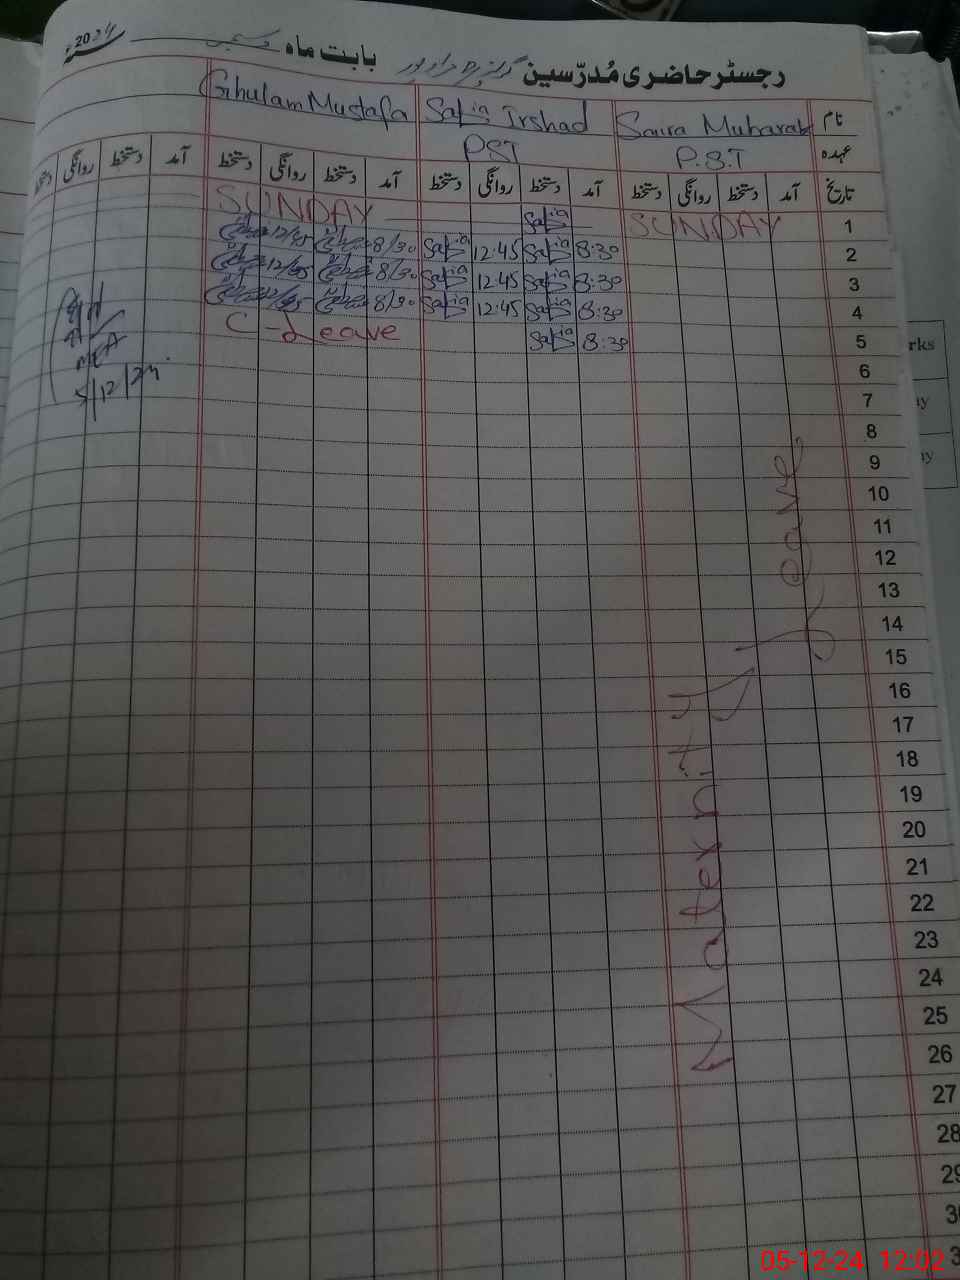 رجسٹر حاضری مُدرّسین
بابت ماہ دسمبر 2024
نام Saira Mubarak Safia Irshad Ghulam Mustafa
عہدہ P.S.T PST
تاریخ آمد دستخط روانگی دستخط آمد دستخط روانگی دستخط آمد دستخط روانگی دستخط آمد دستخط روانگی دستخط
1 SUNDAY Safia SUNDAY
2 8:30 Safia 12:45 Safia 8/30 12/45
3 8:30 Safia 12:45 Safia 8/30 12/45
4 8:30 Safia 12:45 Safia 8/30 12/45
5 8:30 Safia C-Leave
6
7
8
9
10
11
12
13
14
15
16
17
18
19
20
21
22
23
24
25
26
27
28
29
30
Maternity Leave
MEA
5/12/24
rks
ay
ay
05-12-24 12:02